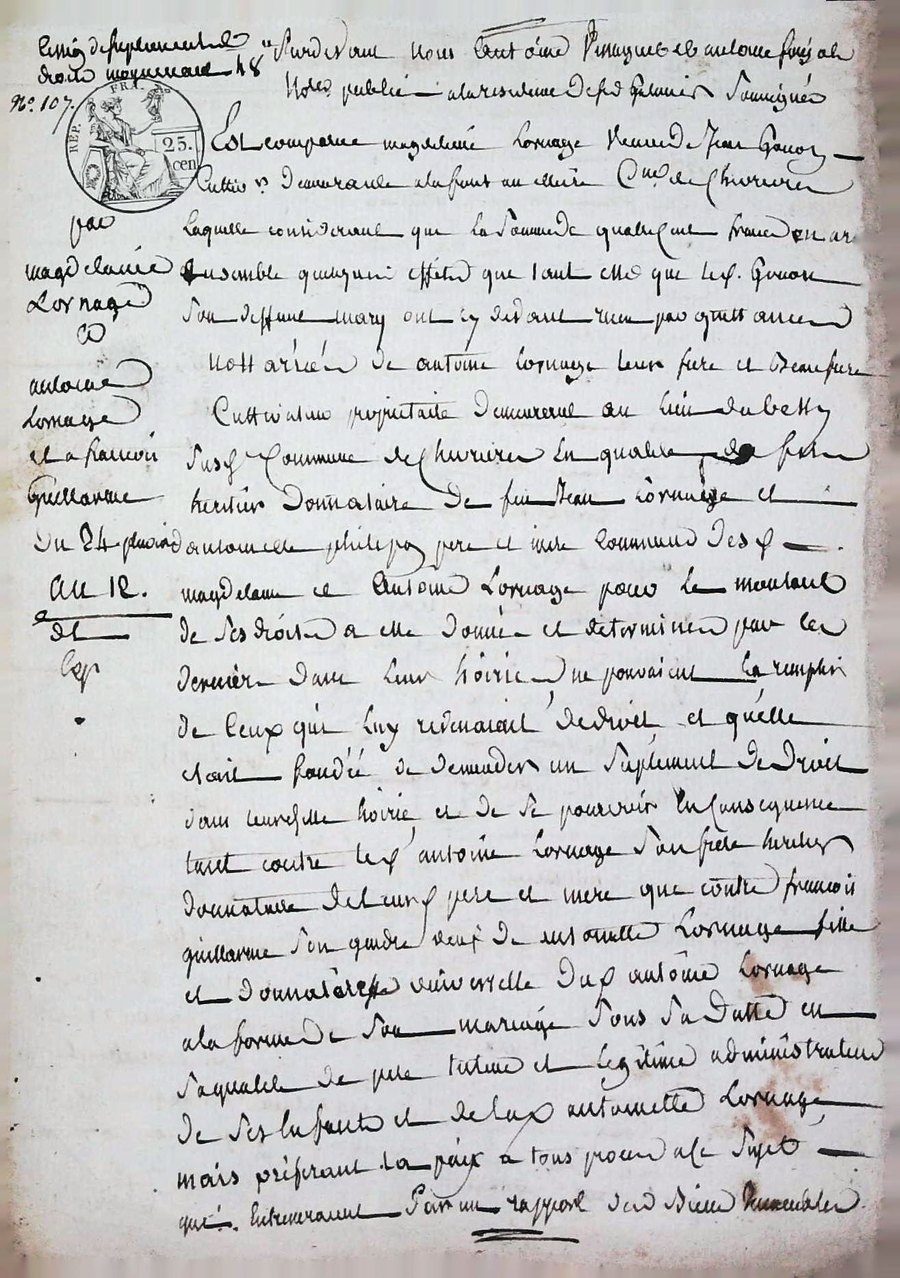 droits moyennant 48
N°. 107.
REP. FRA.
25.
cen
par
magdelaine
Lornage
a
antoine
Lornage
et a francois
guillarme
Du 24 pluviose
an 12.
Pardevant nous antoine
Not.re public a la residence de soussignés
Est comparue magdelaine Lornage veuve de Jean Gouon
demeurante Cne. de Chevrieres
Laquelle considerant que la Somme de quatre Cent francs en ar
ensemble quelques effets que tant elle que led. Gouon
Son deffunt mary ont cy devant reçu par quittance
nottariée de antoine Lornage leur frere et beaufrere
Cultivateur propriétaire demeurent au lieu du betty
Susd. Commune de Chevrieres En qualité de
heritier Donnataire de feu Jean Lornage et
antoinette philipon pere et mere Communs desd.
magdelaine et Antoine Lornage pour le montant
de Ses droits a elle donnés et determinés par les
derniers dans leur hoirie ne pouvaient La remplir
de Ceux qui Luy revenaient de droit et quelle
etait fondée de demander un Suplement de Droit
dans leurditte hoirie et de Se pourvoir En Consequence
tant contre led. antoine Lornage Son frere heritier
donnataire de leurs d. pere et mere que contre francois
guillarme Son gendre veuf de antoinette Lornage fille
et donnataire universelle dud. antoine Lornage
a la forme de Son mariage Sous Sa Datte en
Sa qualité de pere tuteur et legitime administrateur
de Ses Enfants et de lad. antoinette Lornage
mais préférant la paix a tous proces a ce Sujet
que Entreront Par un rapport des Biens immeubles